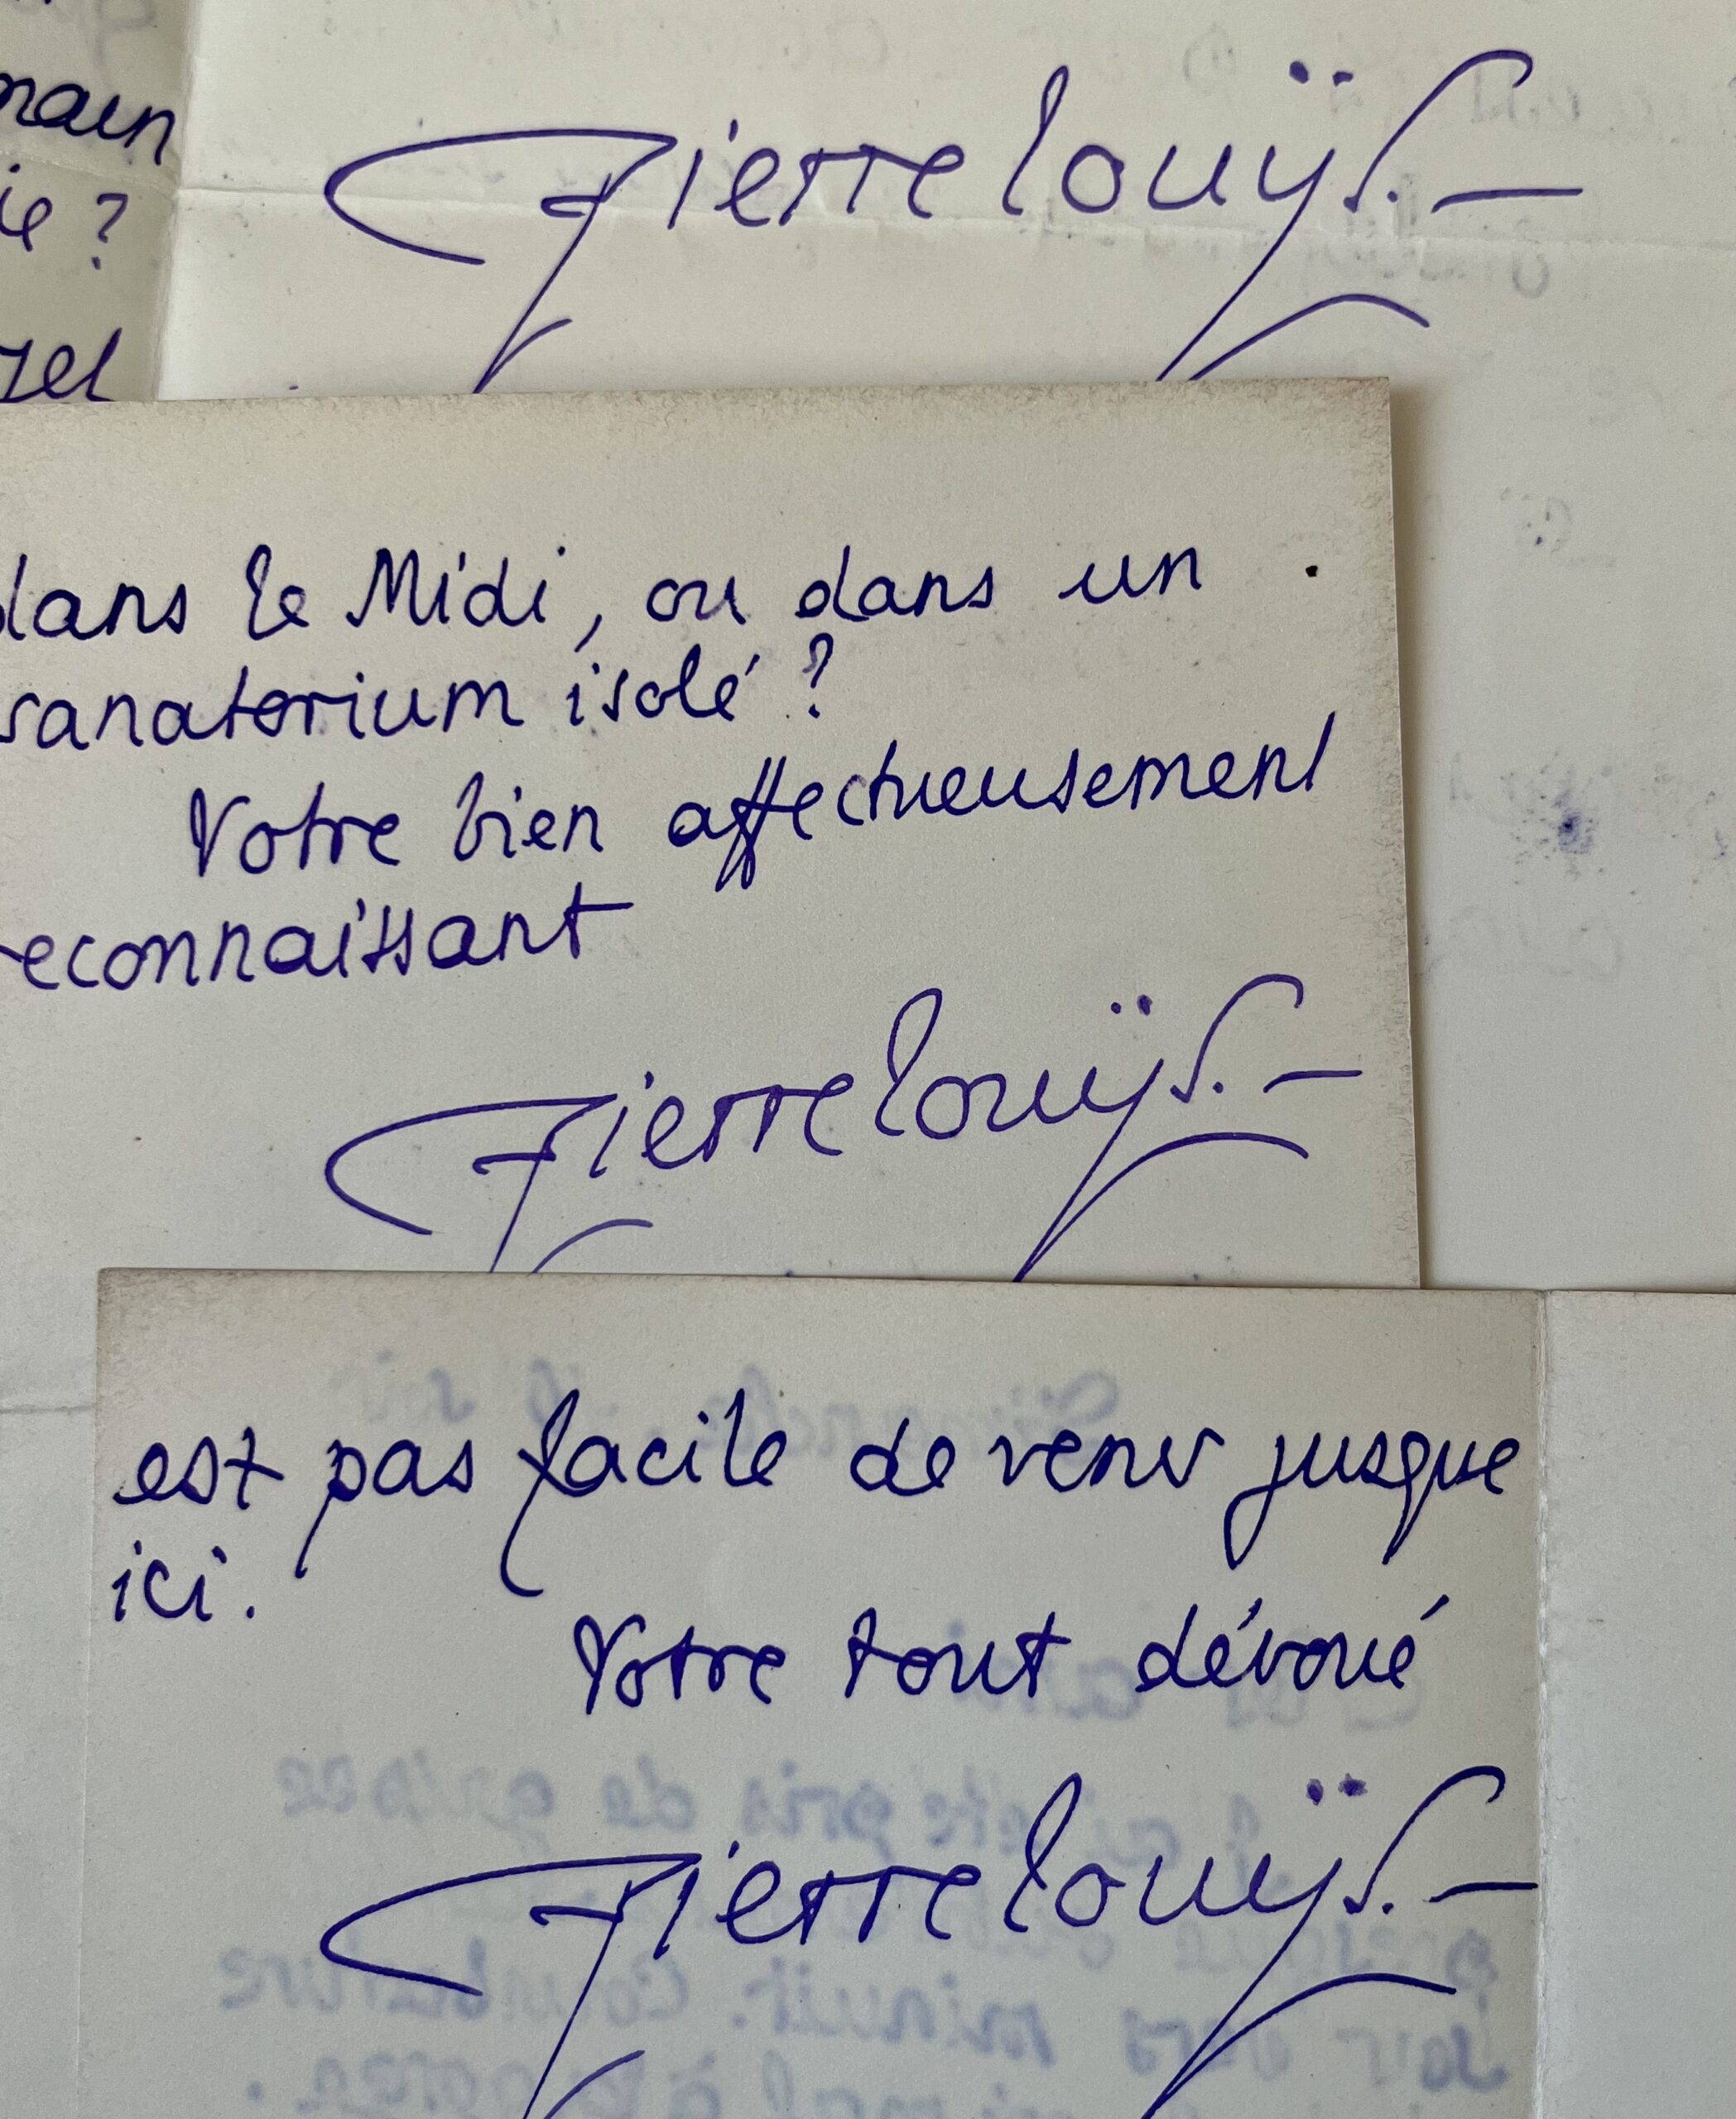 Pierre Louÿs. —
dans le Midi, ou dans un
sanatorium isolé ?
Votre bien affectueusement
reconnaissant
Pierre Louÿs. —
est pas facile de venir jusque
ici.
Votre tout dévoué
Pierre Louÿs. —